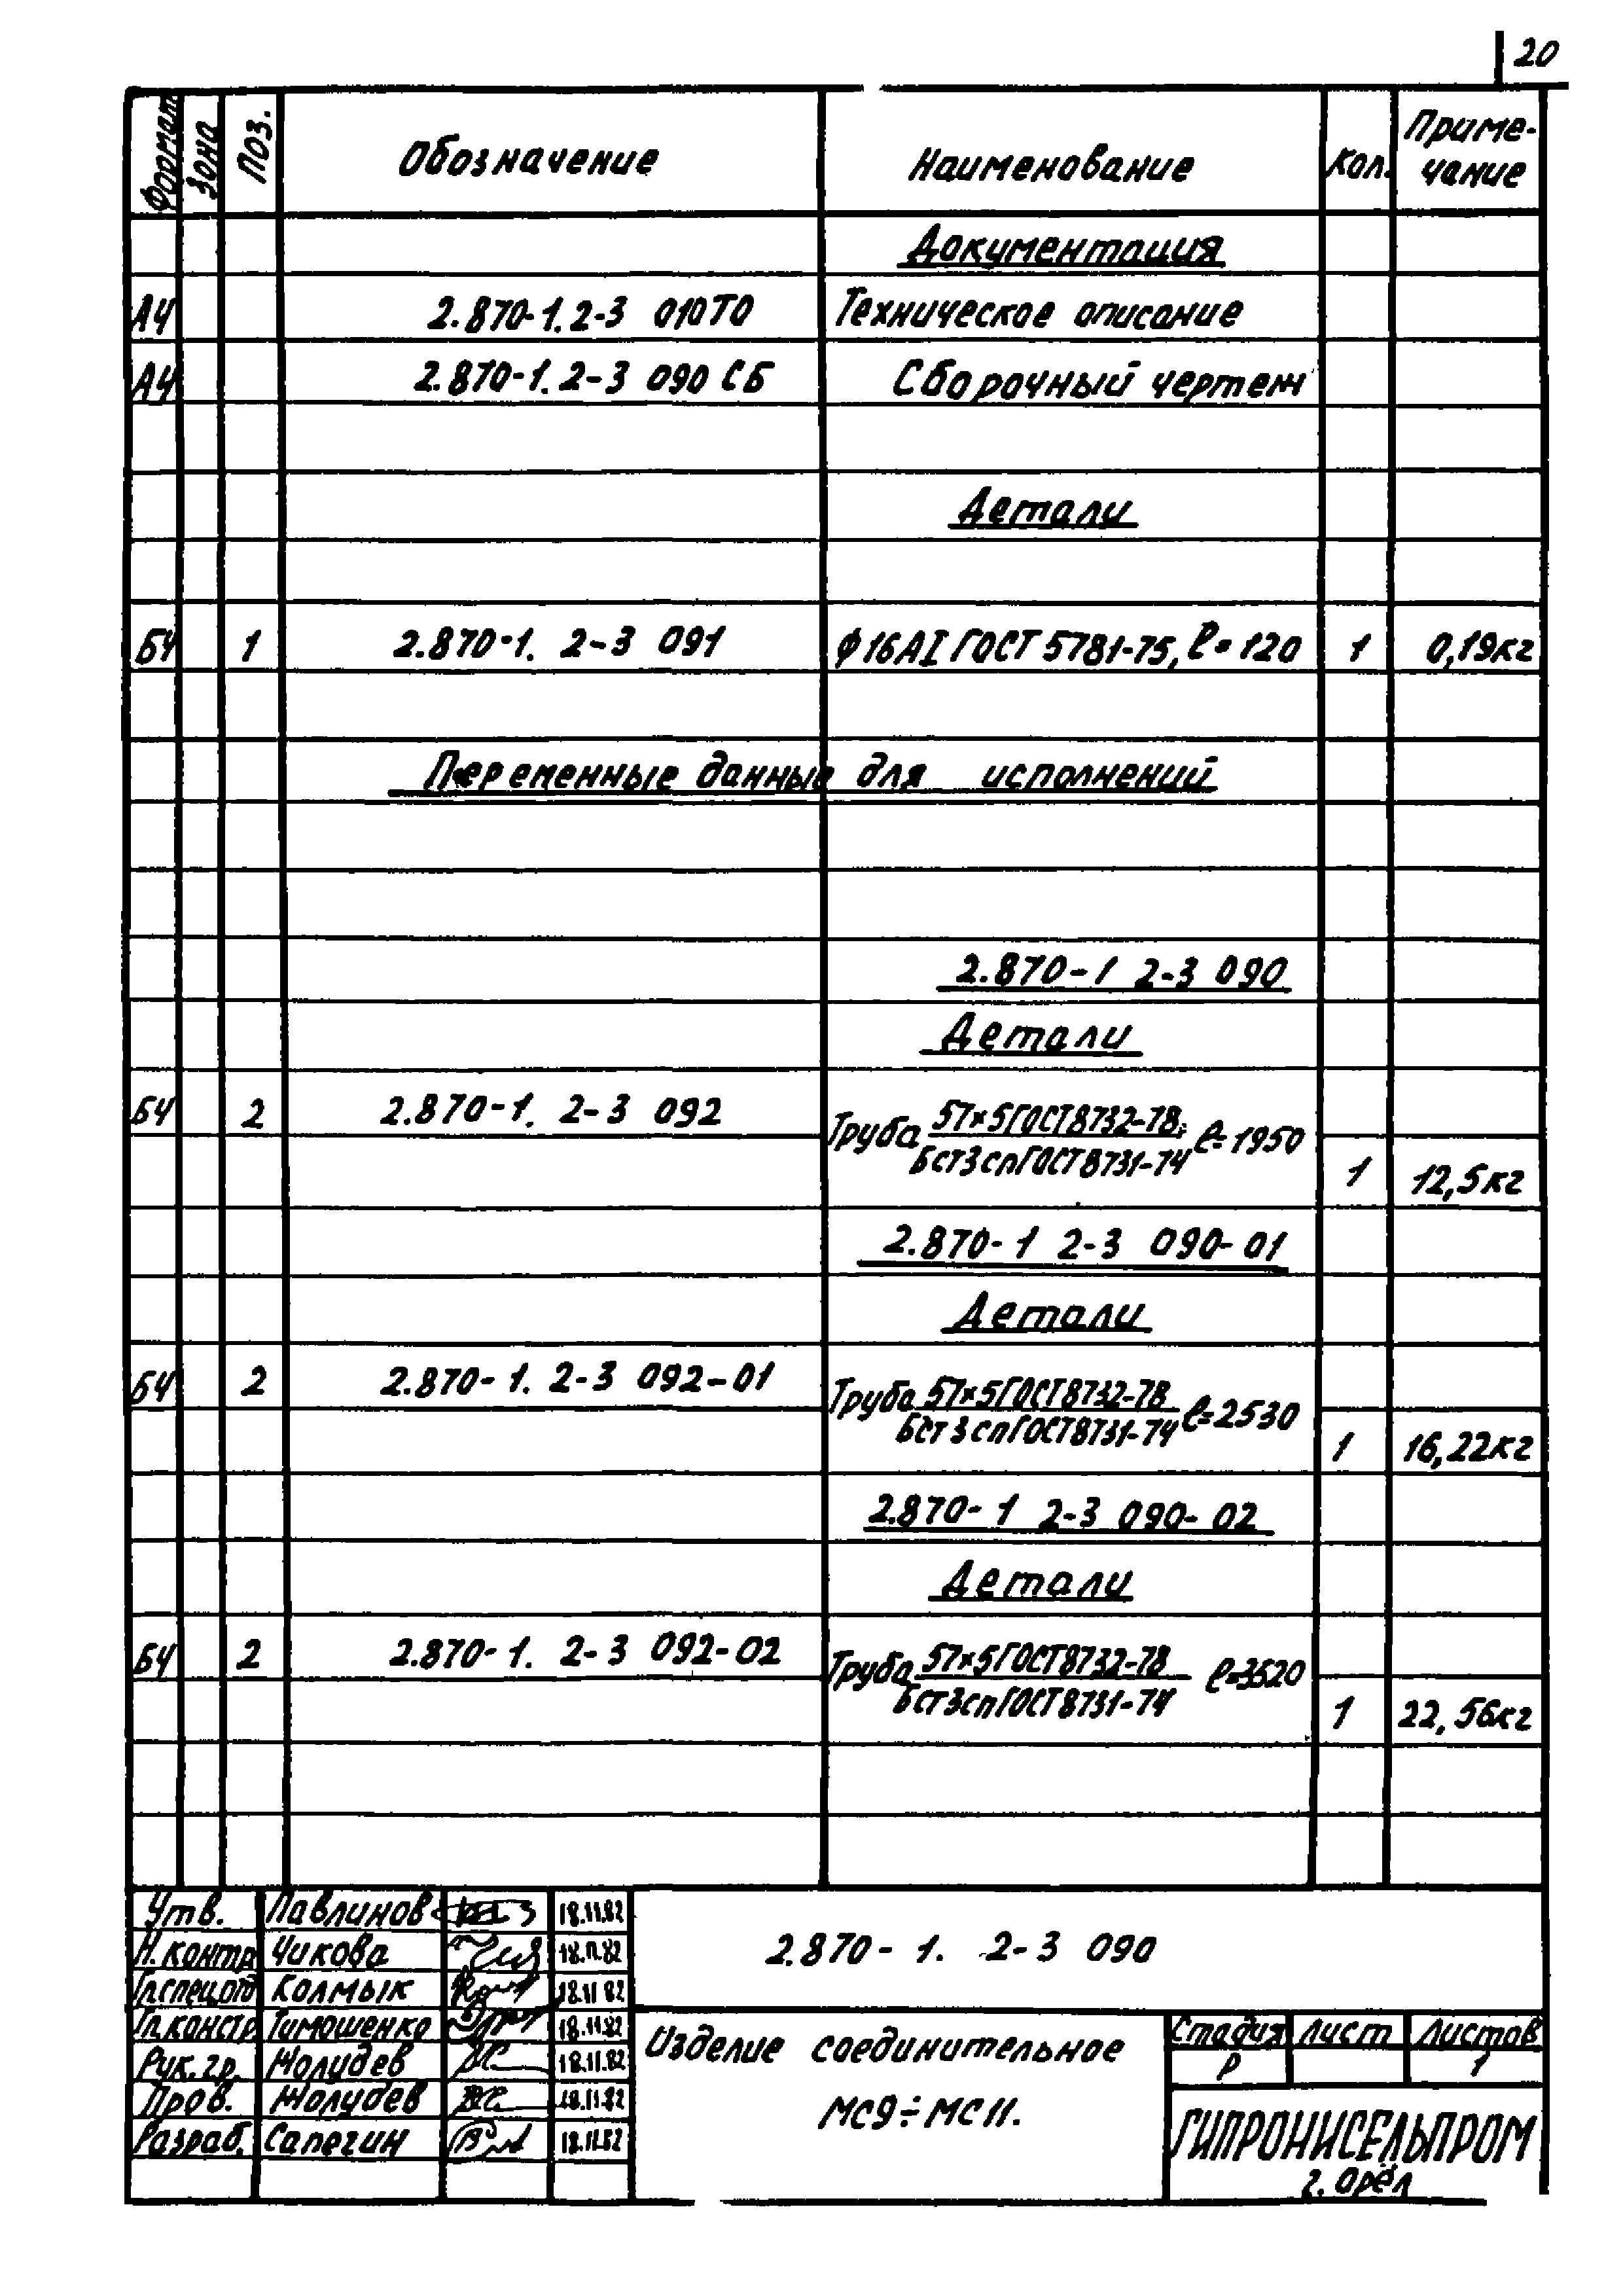 20
Формат Зона Поз. Обозначение Наименование Кол. Приме-
чание
Документация
А4 2.870-1.2-3 010ТО Техническое описание
А4 2.870-1.2-3 090 СБ Сборочный чертеж
Детали
БЧ 1 2.870-1. 2-3 091 Ф16АI ГОСТ 5781-75, ℓ=120 1 0,19кг
Переменные данные для исполнений
2.870-1 2-3 090
Детали
БЧ 2 2.870-1. 2-3 092 Труба 57×5ГОСТ8732-78, ℓ=1950
БСт3спГОСТ8731-74 1 12,5кг
2.870-1 2-3 090-01
Детали
БЧ 2 2.870-1. 2-3 092-01 Труба 57×5ГОСТ8732-78 ℓ=2530
БСт3спГОСТ8731-74 1 16,22кг
2.870-1 2-3 090-02
Детали
БЧ 2 2.870-1. 2-3 092-02 Труба 57×5ГОСТ8732-78 ℓ=3520
БСт3спГОСТ8731-74 1 22,56кг
Утв. Павлинов 18.11.82
Н.контр Чикова 18.11.82
Гл.спец.от Колмык 18.11.82
Гл.констр Тимошенко 18.11.82
Рук.гр. Жолудев 18.11.82
Пров. Жолудев 18.11.82
Разраб. Сапегин 18.11.82
2.870-1. 2-3 090
Изделие соединительное
МС9÷МС11.
Стадия Лист Листов
Р 1
ГИПРОНИСЕЛЬПРОМ
г. Орёл